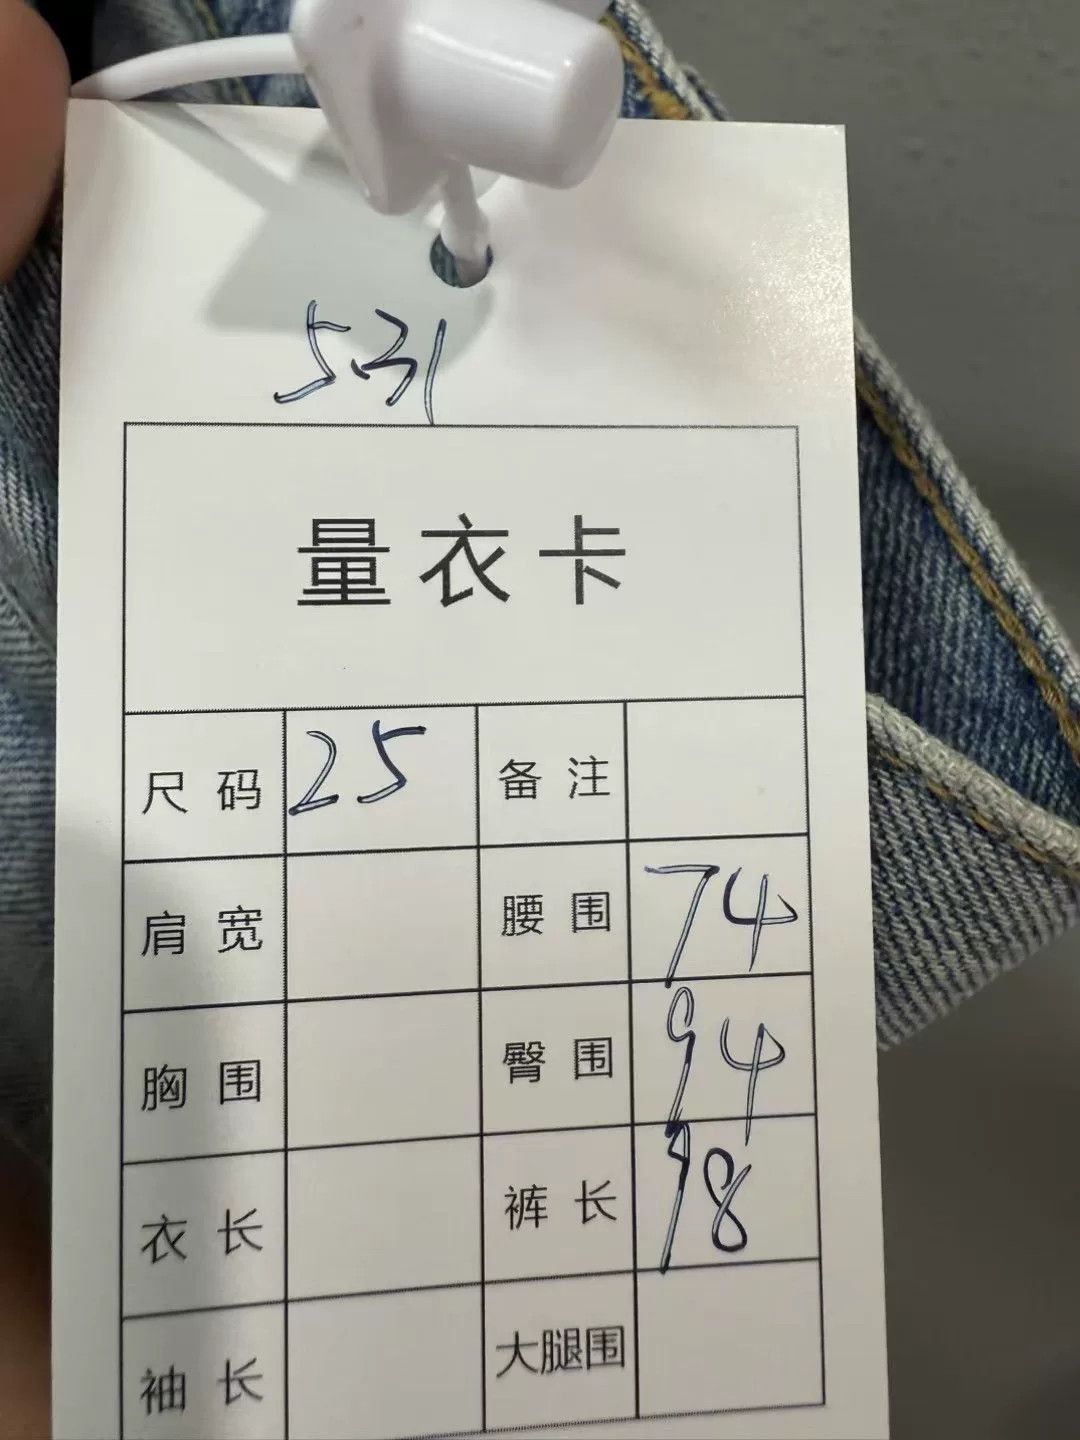 531
量衣卡
尺码 25 备注
肩宽 腰围 74
胸围 臀围 94
衣长 裤长 98
袖长 大腿围